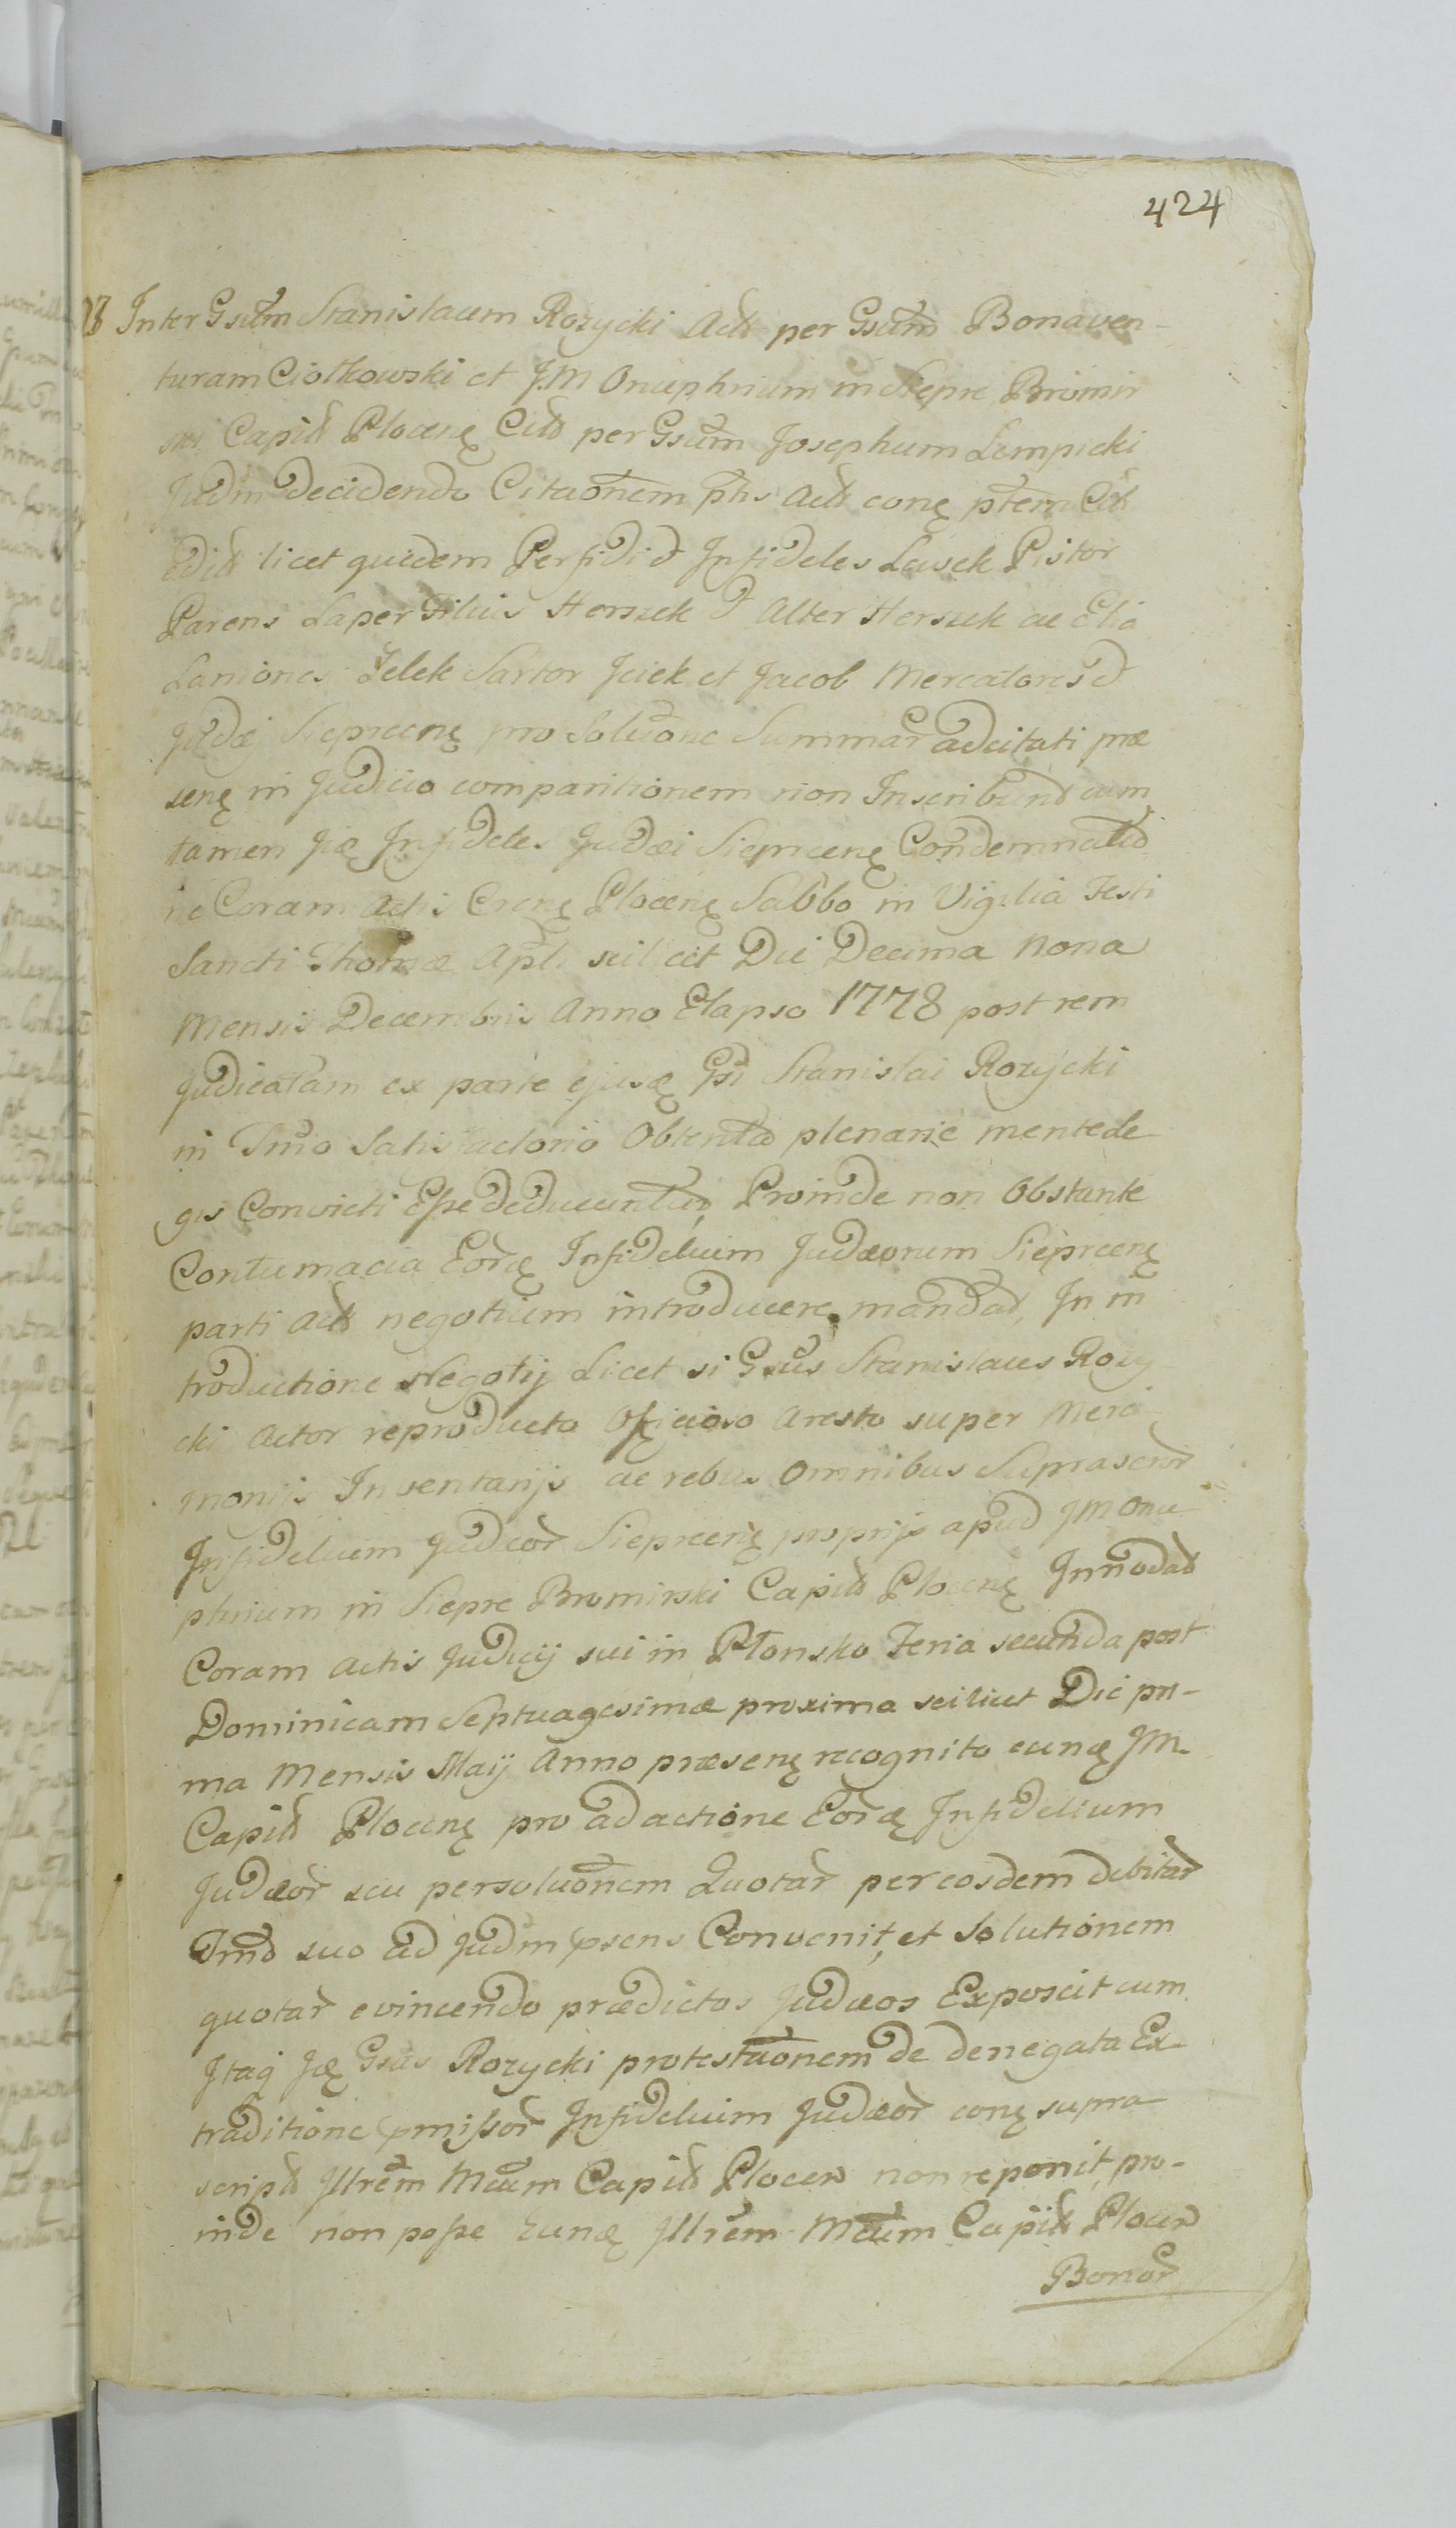 424
Inter Gsum Stanislaum Rozycki Actb per Gsum Bonaven-
turam Ciołkowski et JM Onuphrium in Siepre Bromir
ski Capitb Plocenę Citb per Gsum Josephum Lempicki
Judm Decidendo Citaonem phs Actb conę ptem Citb
editb licet quidem Perfidi et Infideles Lasek Pistor
Parens Laper Filius Herszek et Alter Herszek ac Elia
Laniones Jelek Sartor Jciek et Jacob Mercatores et
Judæi Siepreenę pro Soluone Summar adcitati præ
senę in Judicio comparitionem non Inscribunt cum
tamen Jię Infideles Judæi Siepreenę Condemnatio
ne Coram Actis Crenę Plocenę Sabbo in Vigilia Festi
Sancti Thomæ Apli scilicet Die Decima Nona
Mensis Decembris Anno Elapso 1778 post rem
Judicatam ex parte ejusę Gsi Stanislai Rozycki
in Tmo Satisfactorio Obtenta plenarie mente le
gis Convicti Esse deducuntur, Proinde non Obstante
Contumacia Eorę Infidelium Judæorum Siepreenę
parti Actb negotium introducere mandat, In in
troductione Negotij Licet si Gsus Stanislaus Rozy
cki Actor reproducto Officioso Aresto super Merci
monijs Inventarijs ac rebus Omnibus Suprascror
Infidelium Judæor Siepreenę proprijs apud JM Onu
phrium in Siepre Bromirski Capitb Plocenę Innodat
Coram Actis Judicij sui in Płonsko Feria secunda post
Dominicam Septuagesimæ proxima scilicet Die pri-
ma Mensis Maij Anno præsenę recognito eunę JM
Capitb Plocenę pro adactione Eorę Infidelium
Judæor seu persoluonem Quotar per eosdem debitar
Tmo suo ad Judm psens Convenit, et Solutionem
quotar evincendo prædictos Judæos Exposcit cum
Itaq Ję Gsus Rozycki protestuonem de denegata Ex-
traditione pmissor Infidelium Judæor conę supra
scriptb Illrem Mcum Capitb Plocen non reponit, pro-
inde non posse Eunę Illrem Mcum Capitb Plocen
Bonor